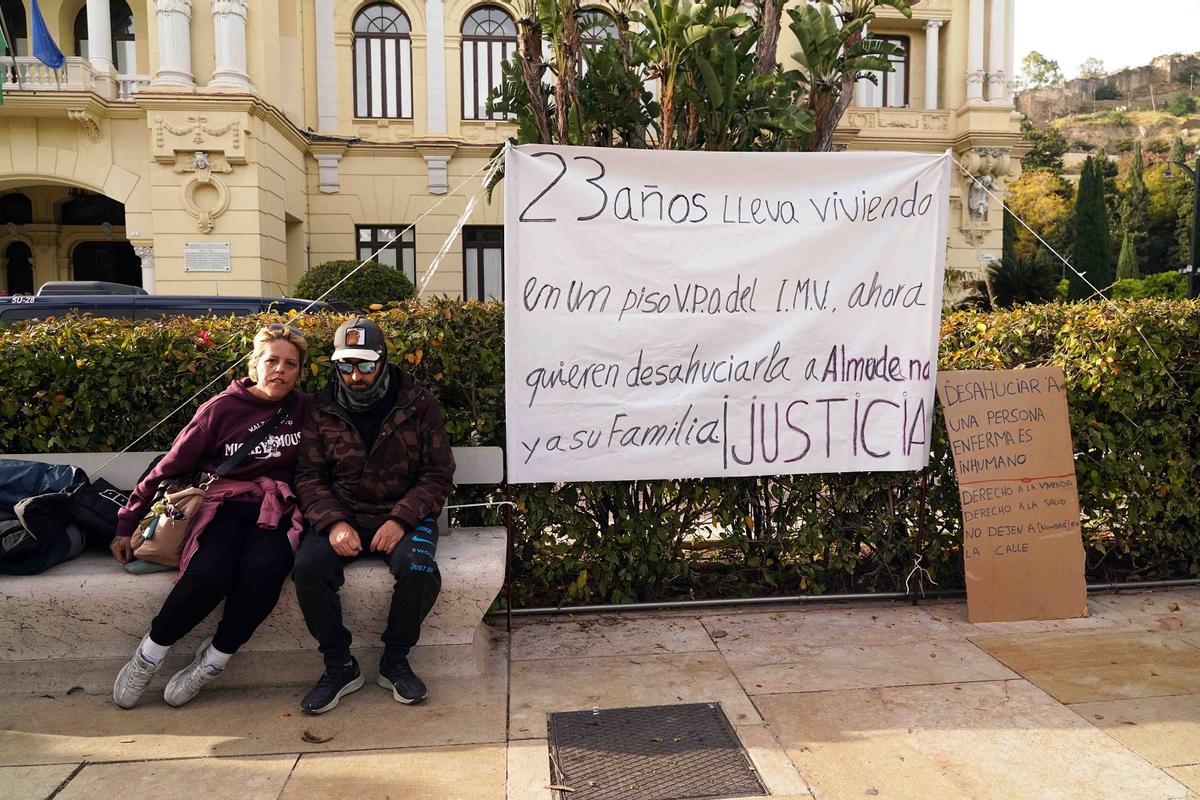 23 años LLeva viviendo
en un piso V.P.O. del I.M.V., ahora
quieren desahuciarla a Almudena
y a su Familia ¡JUSTICIA
DESAHUCIAR A
UNA PERSONA
ENFERMA ES
INHUMANO
DERECHO A LA VIVIENDA
DERECHO A LA SALUD
NO DEJEN A [NOMBRE] EN
LA CALLE
SU-28
MICKEY MOUSE
NIKE
JUST DO